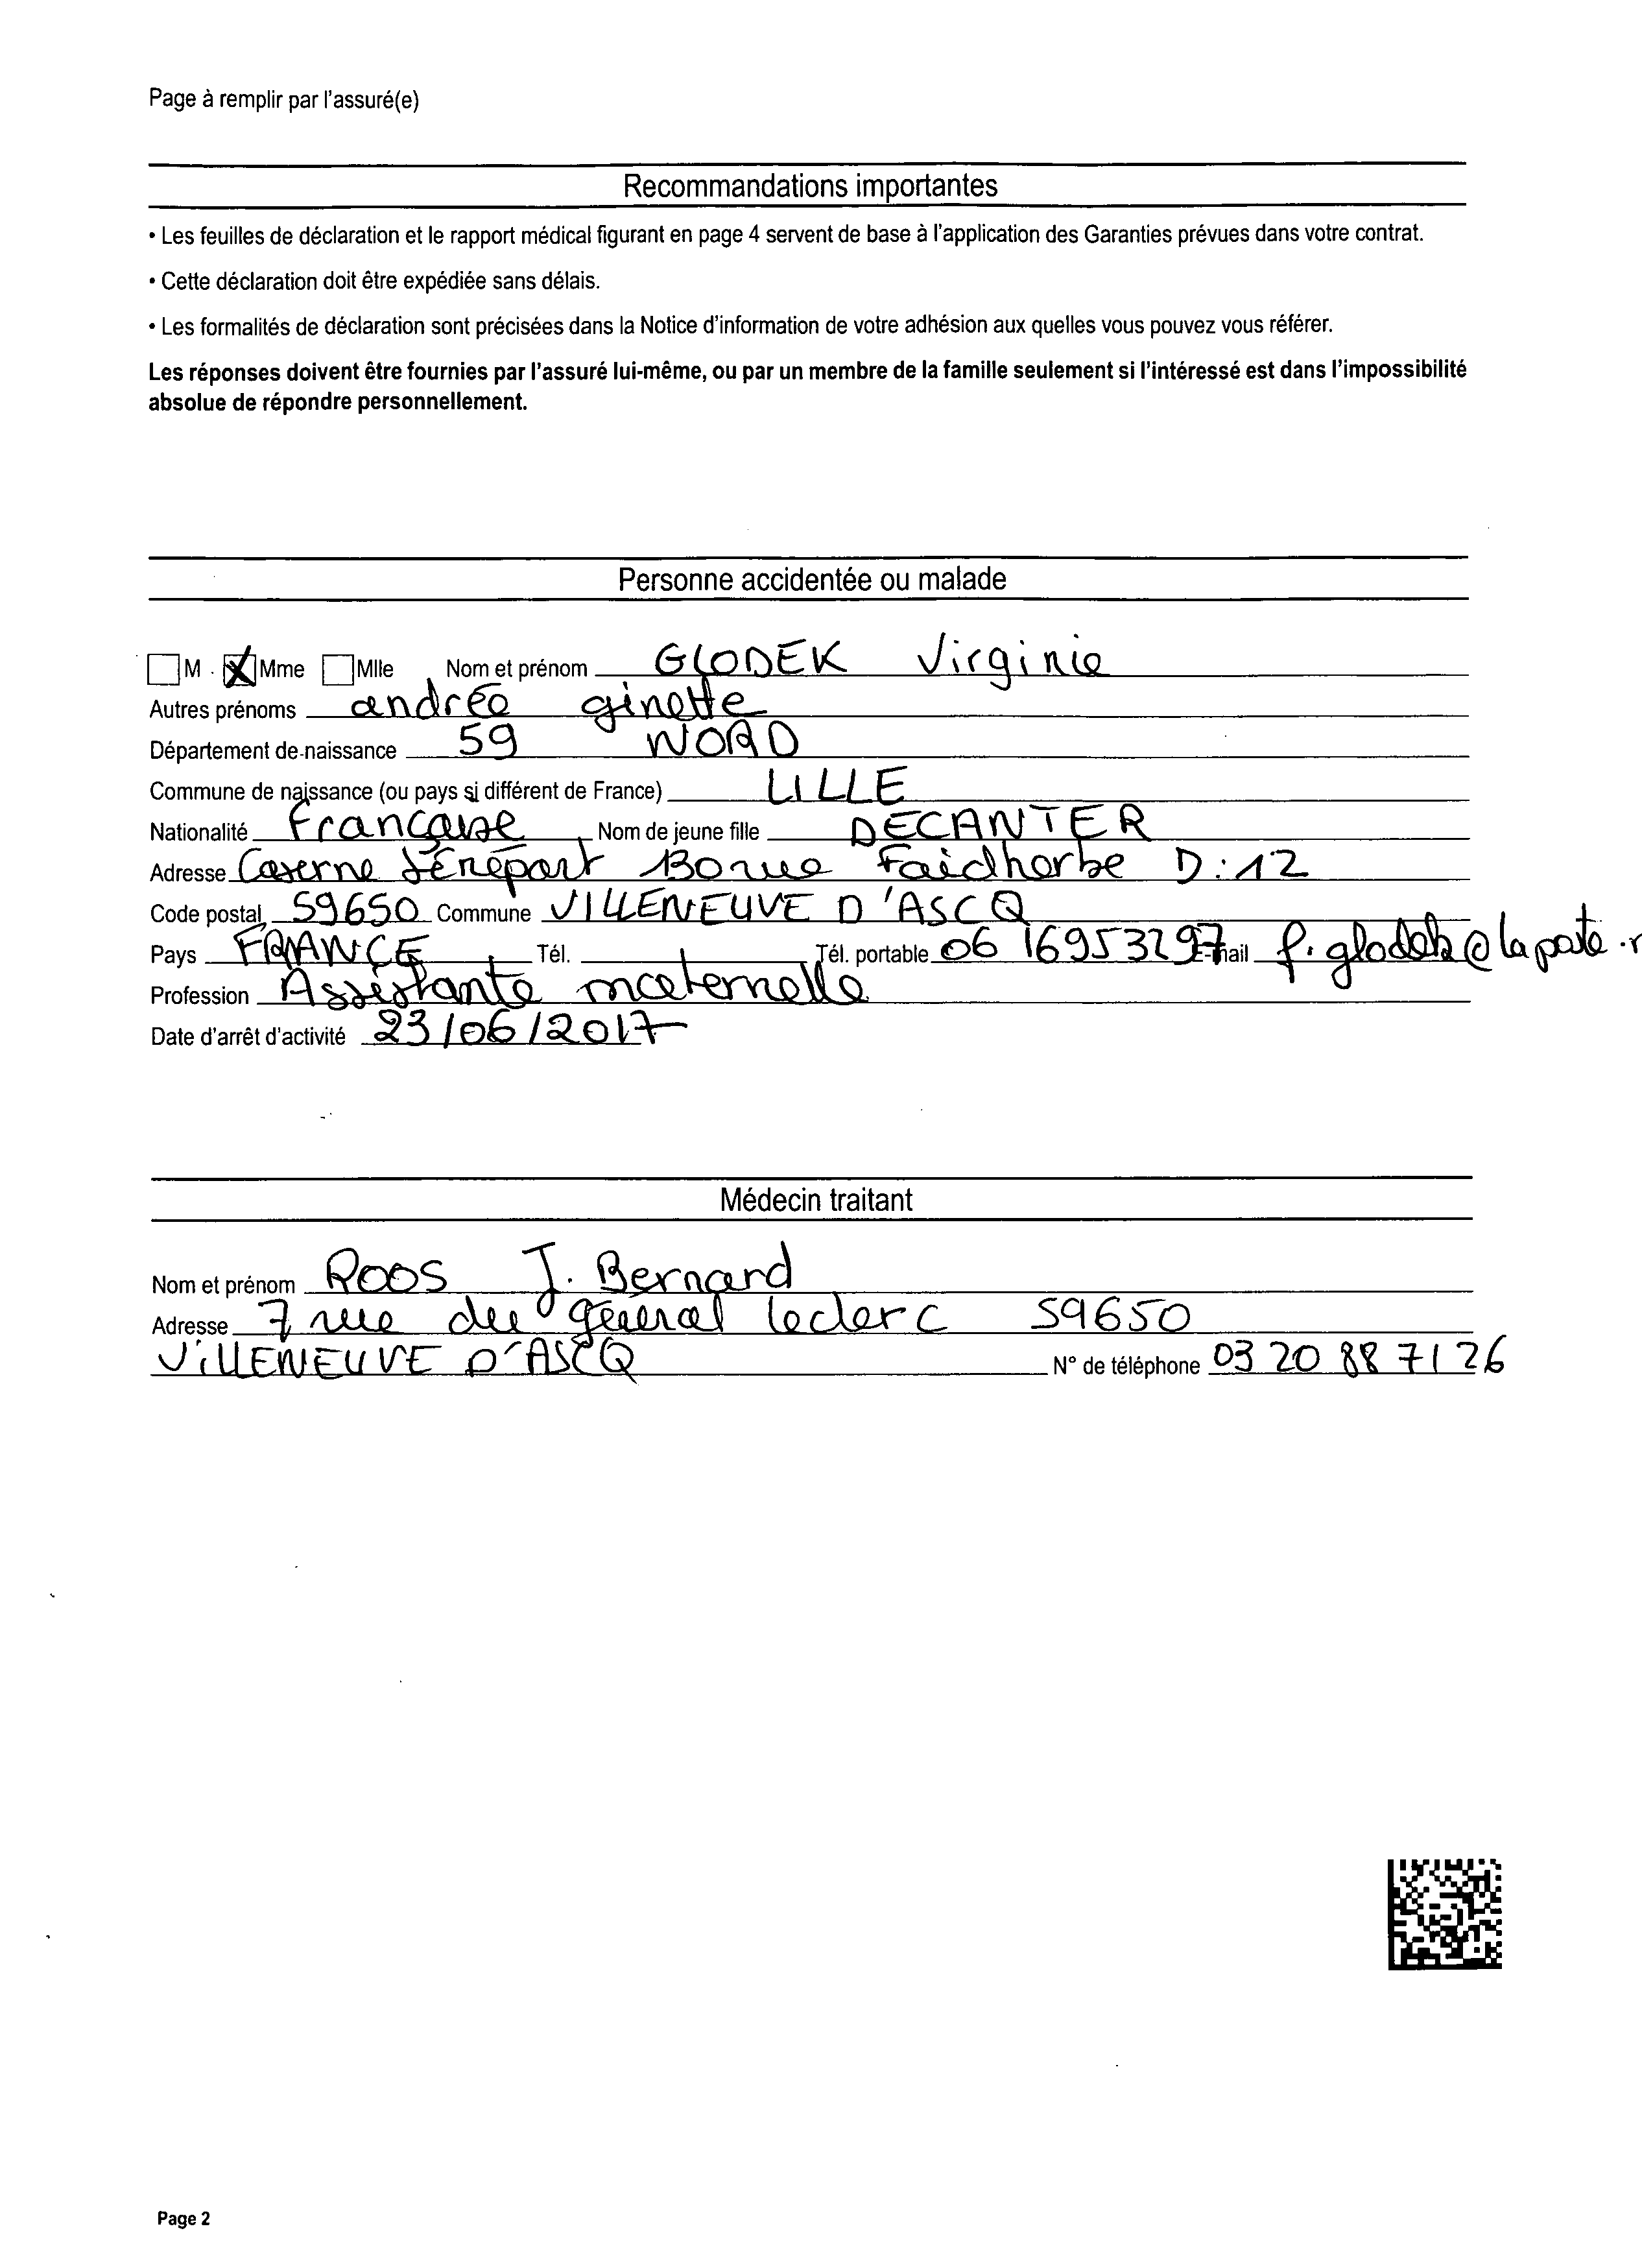 Page à remplir par l'assuré(e)
Recommandations importantes
• Les feuilles de déclaration et le rapport médical figurant en page 4 servent de base à l'application des Garanties prévues dans votre contrat.
• Cette déclaration doit être expédiée sans délais.
• Les formalités de déclaration sont précisées dans la Notice d'information de votre adhésion aux quelles vous pouvez vous référer.
Les réponses doivent être fournies par l'assuré lui-même, ou par un membre de la famille seulement si l'intéressé est dans l'impossibilité
absolue de répondre personnellement.
Personne accidentée ou malade
M X Mme Mlle Nom et prénom GLODEK Virginie
Autres prénoms andrée ginette
Département de naissance 59 NORD
Commune de naissance (ou pays si différent de France) LILLE
Nationalité Française Nom de jeune fille DECANTER
Adresse Caserne rue Faidherbe D:12
Code postal 59650 Commune VILLENEUVE D'ASCQ
Pays FRANCE Tél. Tél. portable 06 16953297 E-mail f.glodek@laposte.
Profession Assistante maternelle
Date d'arrêt d'activité 23/06/2017
Médecin traitant
Nom et prénom ROOS J. Bernard
Adresse 7 rue du général leclerc 59650
VILLENEUVE D'ASCQ N° de téléphone 03 20 88 71 26
Page 2